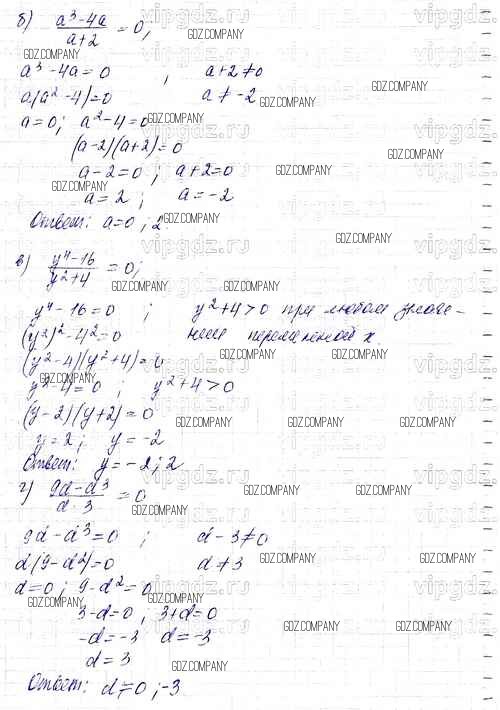 б) a³-4a / a+2 = 0;
a³-4a=0, a+2≠0
a(a²-4)=0 a≠-2
a=0; a²-4=0
(a-2)(a+2)=0
a-2=0; a+2=0
a=2; a=-2
Ответ: a=0; 2
в) y⁴-16 / y²+4 = 0;
y⁴-16=0; y²+4>0 при любом значе-
(y²)²-4²=0 нии переменной x.
(y²-4)(y²+4)=0
y²-4=0; y²+4>0
(y-2)(y+2)=0
y=2; y=-2
Ответ: y=-2; 2
г) 9d-d³ / d-3 = 0
9d-d³=0; d-3≠0
d(9-d²)=0 d≠3
d=0; 9-d²=0
3-d=0, 3+d=0
-d=-3 d=-3
d=3
Ответ: d≠0; -3
GDZ.COMPANY
vipgdz.ru